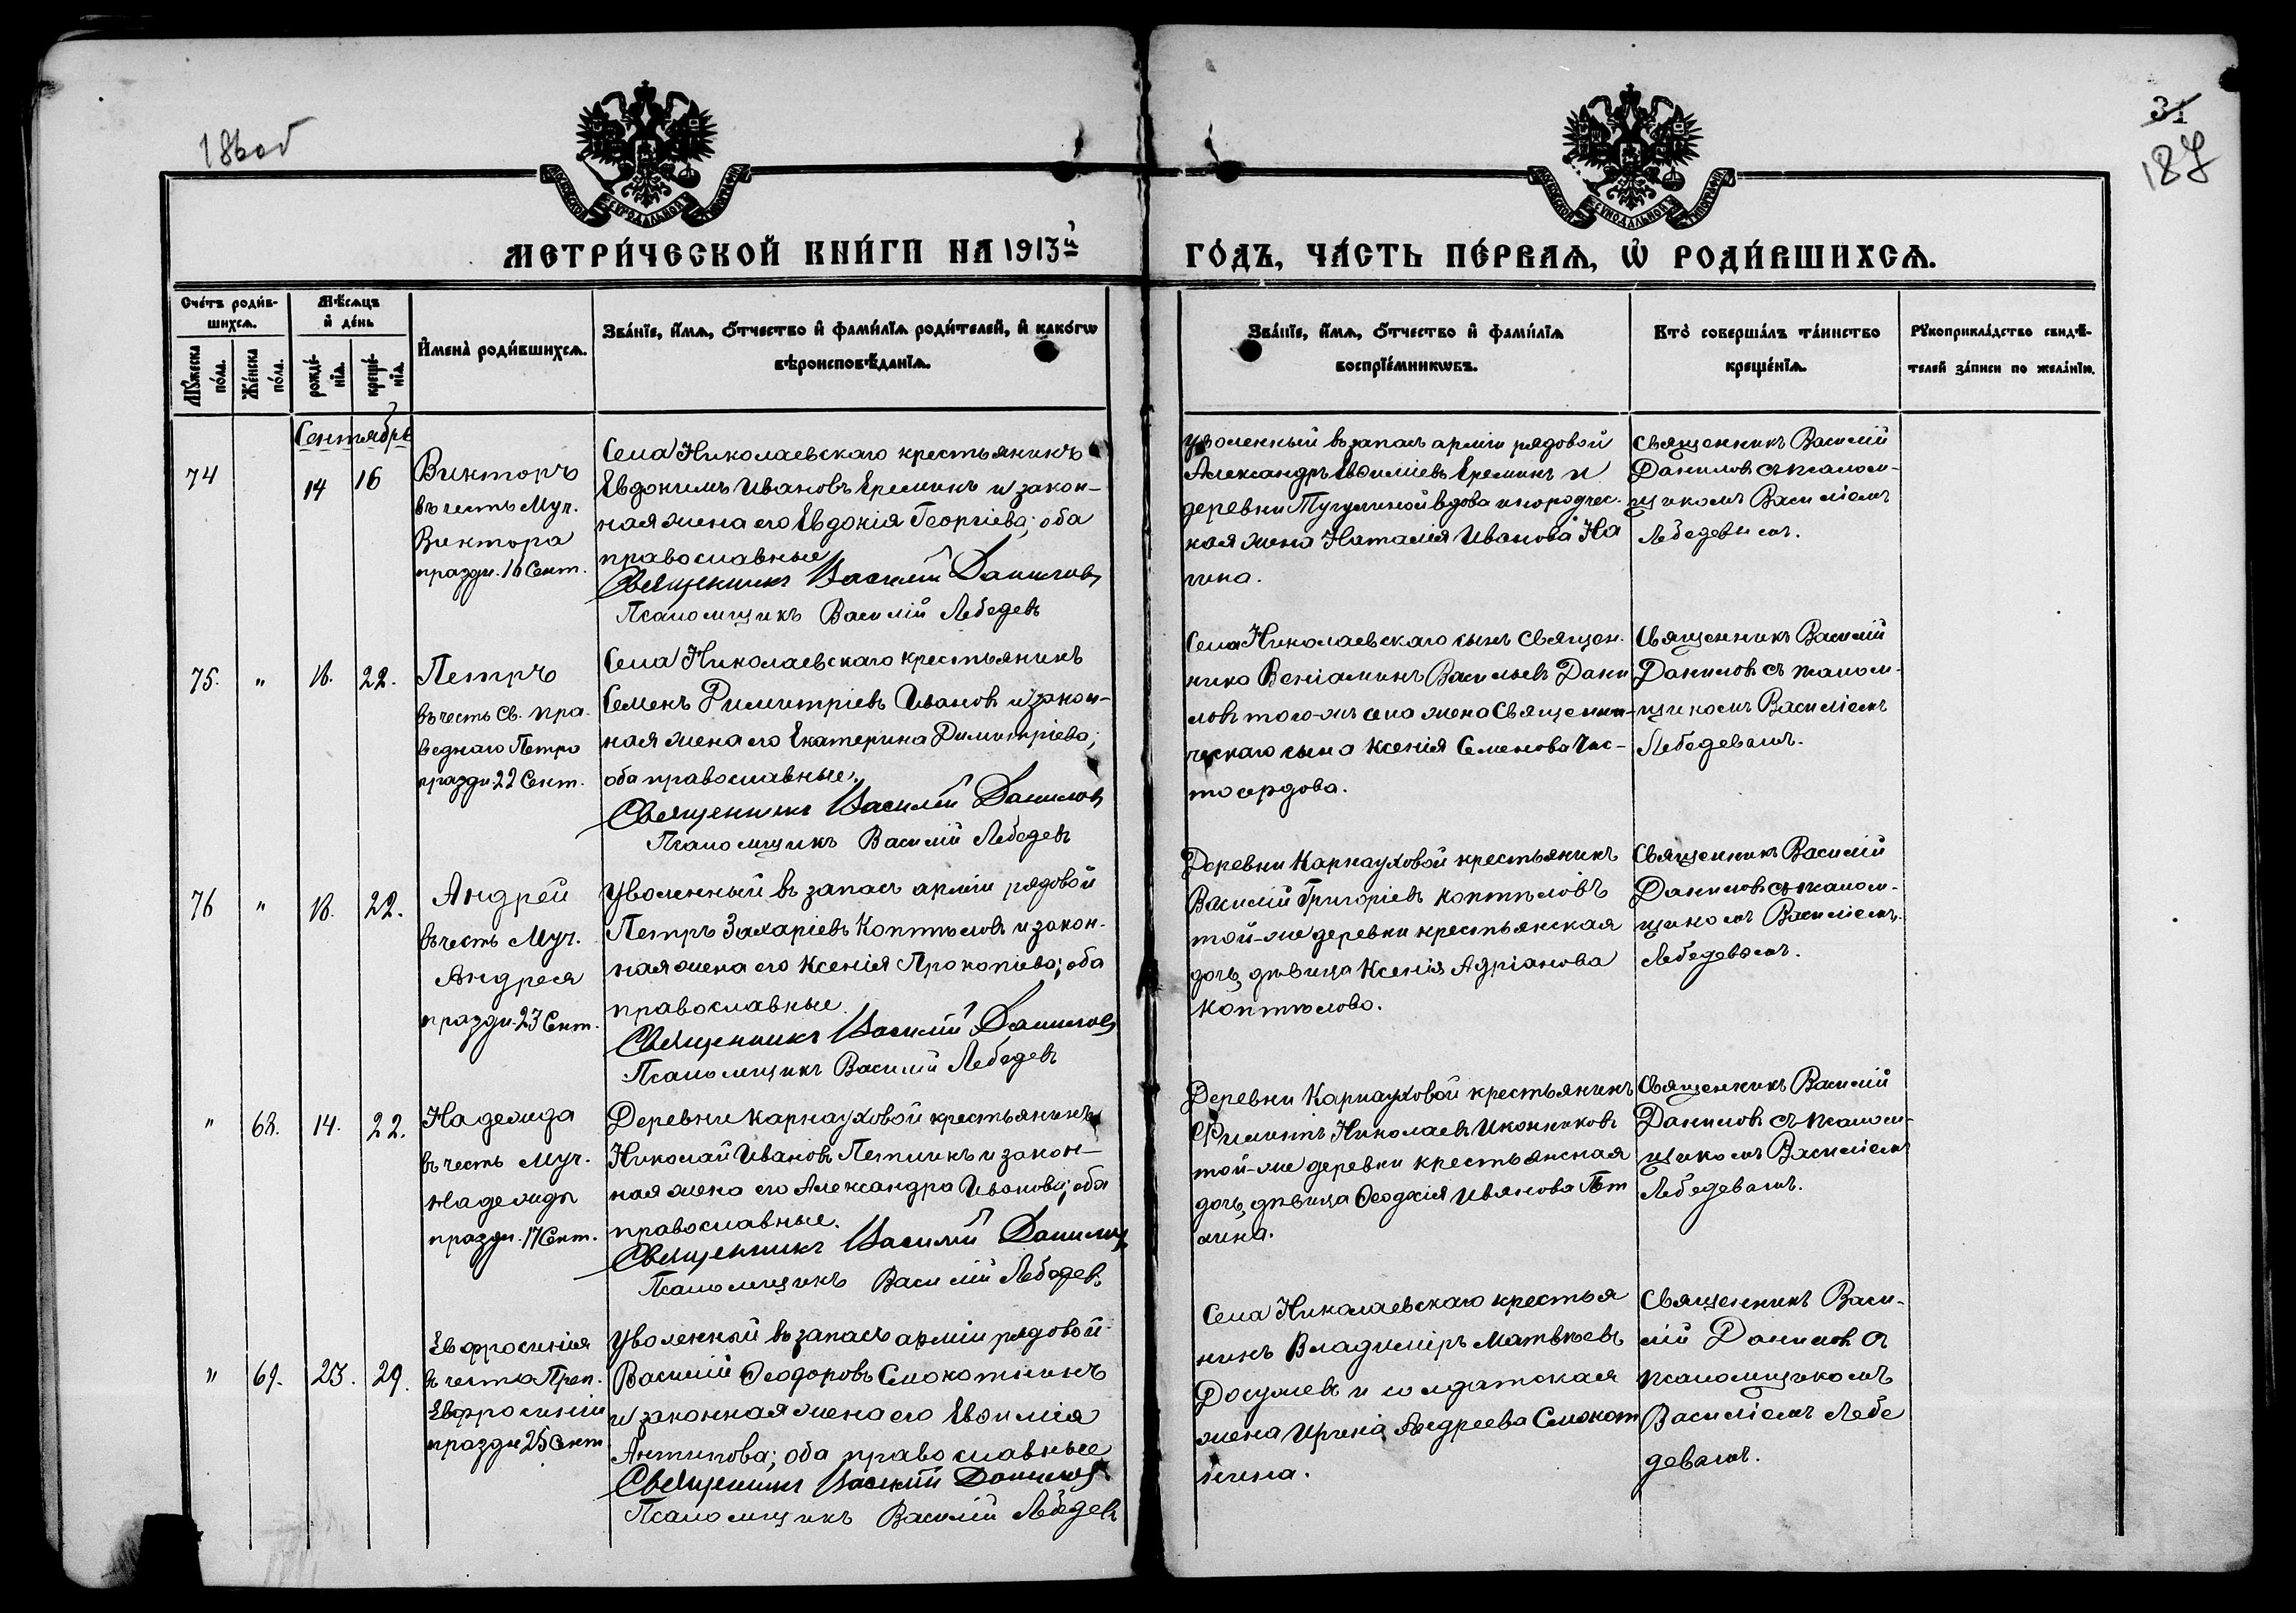 186 об
31
187
МЕТРИ́ЧЕСКОЙ КНИ́ГИ НА 1913й
ГО́ДЪ, ЧА́СТЬ ПЕ́РВАѦ, Ѽ РОДИ́ВШИХСѦ.
Сче́тъ роди́в-
шихсѧ.
Мѣ́сѧцъ
и҆ де́нь
Мꙋ́жеска
по́ла.
Же́нска
по́ла.
рожде́-
нїѧ.
креще́-
нїѧ.
И҆мена̀ роди́вшихсѧ.
Зва́нїе, и҆́мѧ, ѻ҆́тчество и҆ фами́лїѧ роди́телей, и҆ како́гѡ
вѣроисповѣ́данїѧ.
Зва́нїе, и҆́мѧ, ѻ҆́тчество и҆ фами́лїѧ
воспрїе́мникѡвъ.
Кто̀ соверша́лъ та́инство
креще́нїѧ.
Рꙋкоприкла́дство свидѣ́-
телей за́писи по жела́нїю.
Сентябрь
74
14
16
Викторъ
въ честь Муч.
Виктора
праздн. 16 Сент.
Села Николаевскаго крестьянинъ
Евдокимъ Ивановъ Ереминъ и закон-
ная жена его Евдокія Георгіева; оба
православные
Священникъ Василій Даниловъ
Псаломщикъ Василій Лебедевъ
Уволенный въ запасъ арміи рядовой
Александръ Евѳиміевъ Ереминъ и
деревни вдова инородчес-
кая жена Наталія Иванова На
гина.
Священникъ Василій
Даниловъ съ псалом-
щикомъ Василіемъ
Лебедевымъ.
75.
"
18.
22.
Петръ
въ честь Св. пра-
веднаго Петра
праздн. 22 Сент.
Села Николаевскаго крестьянинъ
Семенъ Димитріевъ Ивановъ и закон-
ная жена его Екатерина Димитріева;
оба православные.
Священникъ Василій Даниловъ
Псаломщикъ Василій Лебедевъ
Села Николаевскаго сынъ Священ-
ника Веніаминъ Васильевъ Дани
ловъ того-жъ села жена Священни-
ческаго сына Ксенія Семенова Чис-
тосердова.
Священникъ Василій
Даниловъ съ псалом-
щикомъ Василіемъ
Лебедевымъ.
76
"
18.
22.
Андрей
въ честь Муч.
Андрея
праздн. 23 Сент.
Уволенный въ запасъ арміи рядовой
Петръ Захаріевъ Коптѣловъ и закон-
ная жена его Ксенія Прокопіева; оба
православные.
Священникъ Василій Даниловъ
Псаломщикъ Василій Лебедевъ
Деревни Карнауховой крестьянинъ
Василій Григоріевъ Коптѣловъ
той-же деревни крестьянская
дочь, дѣвица Ксенія Адріанова
Коптѣлова.
Священникъ Василій
Даниловъ съ псалом-
щикомъ Василіемъ
Лебедевымъ.
"
68.
14.
22.
Надежда
въ честь муч.
Надежды
праздн. 17 Сент.
Деревни Карнауховой крестьянинъ
Николай Ивановъ Петлинъ и закон-
ная жена его Александра Иванова; оба
православные.
Священникъ Василій Даниловъ
Псаломщикъ Василій Лебедевъ
Деревни Карнауховой крестьянинъ
Николаевъ Иконниковъ
той-же деревни крестьянская
дочь, дѣвица Ѳеодосія Иванова Пет
лина.
Священникъ Василій
Даниловъ съ псалом-
щикомъ Василіемъ
Лебедевымъ.
"
69.
23.
29.
Евфросинія
въ честь Преп.
Евфросиніи
праздн 25 Сент
Уволенный въ запасъ арміи рядовой
Василій Ѳеодоровъ Смокотнинъ
и законная жена его Евѳимія
Антипова; оба православные
Священникъ Василій Даниловъ
Псаломщикъ Василій Лебедевъ
Села Николаевскаго крестья
нинъ Владиміръ Матвѣевъ
Досужевъ и солдатская
жена Ирина Андреева Смокот
нина.
Священникъ Васи-
лій Даниловъ съ
псаломщикомъ
Василіемъ Лебе
девымъ.